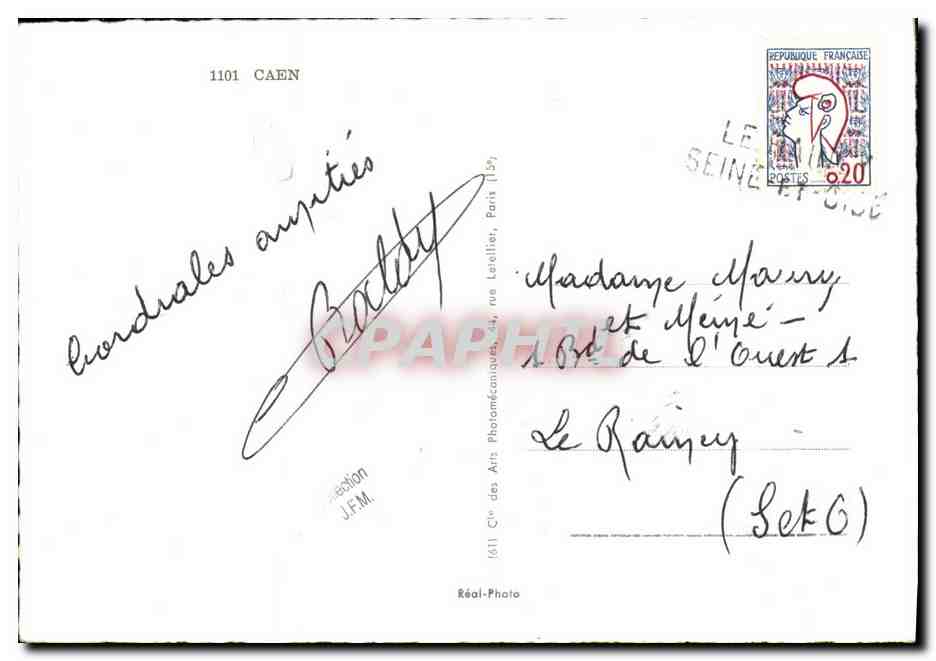 1101 CAEN
REPUBLIQUE FRANÇAISE
POSTES 0,20
LE
SEINE-ET-OISE
Cordiales amitiés
(61) Cie des Arts Photomécaniques, 44, rue Letellier, Paris (15e)
CPAPHIL
Madame
et
1 Bd de l'Ouest 1
Le Raincy
(S et O)
lection
J.F.M.
Réal-Photo